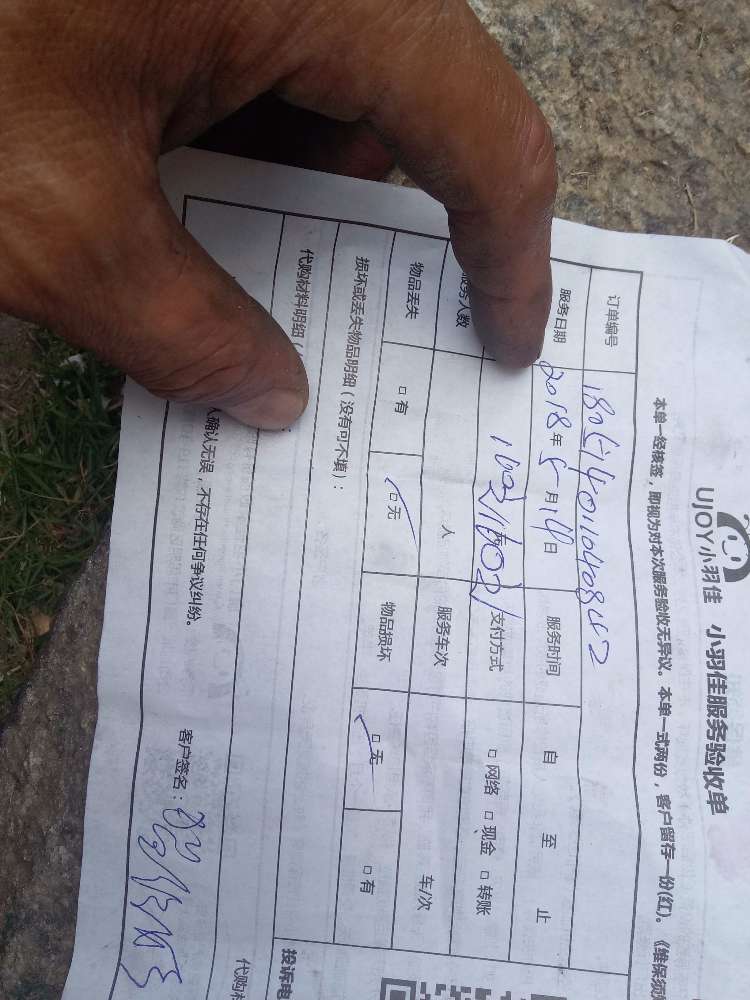 UJOY小羽佳 小羽佳服务验收单
本单一经核签，即视为对本次服务验收无异议。本单一式两份，客户留存一份(红)。《维保须
订单编号
服务日期 2018年5月14日 服务时间 自 至 止
支付方式 □ 网络 □ 现金 □ 转账
服务人数 人 服务车次 车/次
物品丢失 □ 有 □ 无 物品损坏 □ 无 □ 有
损坏或丢失物品明细（没有可不填）：
代购材料明细（
代购材
人确认无误，不存在任何争议纠纷。
客户签名：
投诉电